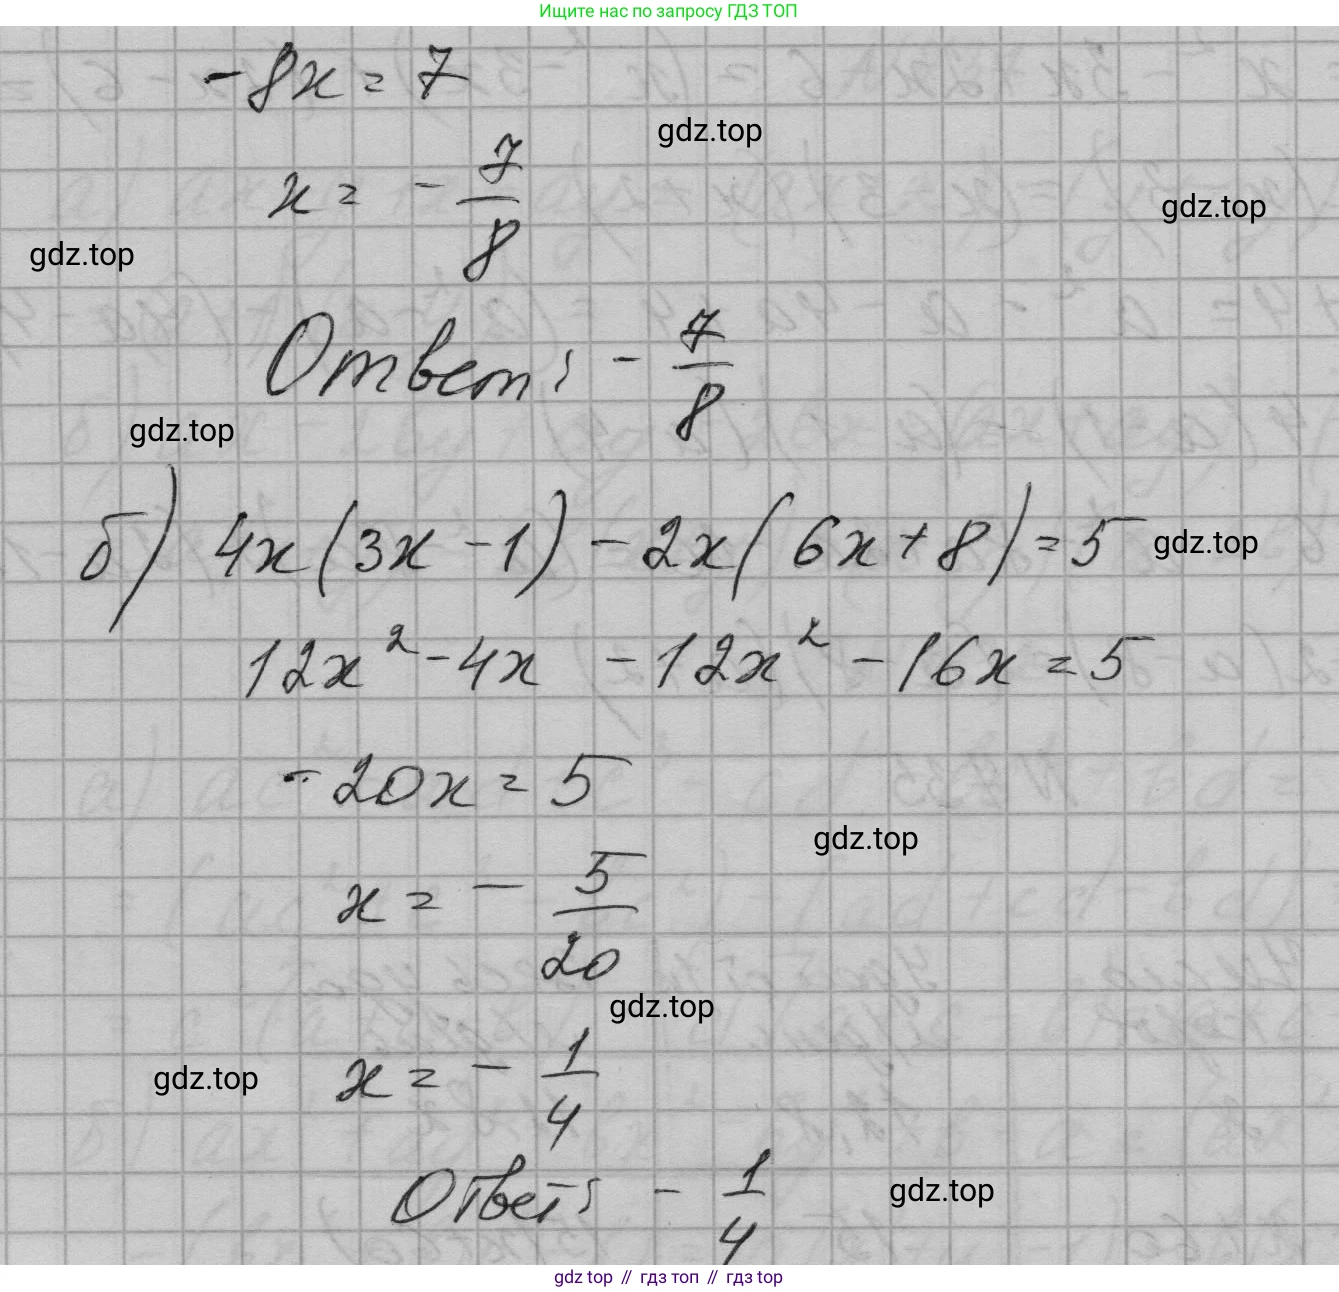 Ищите нас по запросу ГДЗ ТОП
-8x = 7
gdz.top
x = - 7/8
gdz.top
gdz.top
Ответ: - 7/8
gdz.top
б) 4x(3x - 1) - 2x(6x + 8) = 5
gdz.top
12x² - 4x - 12x² - 16x = 5
-20x = 5
gdz.top
x = - 5/20
gdz.top
x = - 1/4
gdz.top
Ответ: - 1/4
gdz.top
gdz top // гдз топ // гдз top